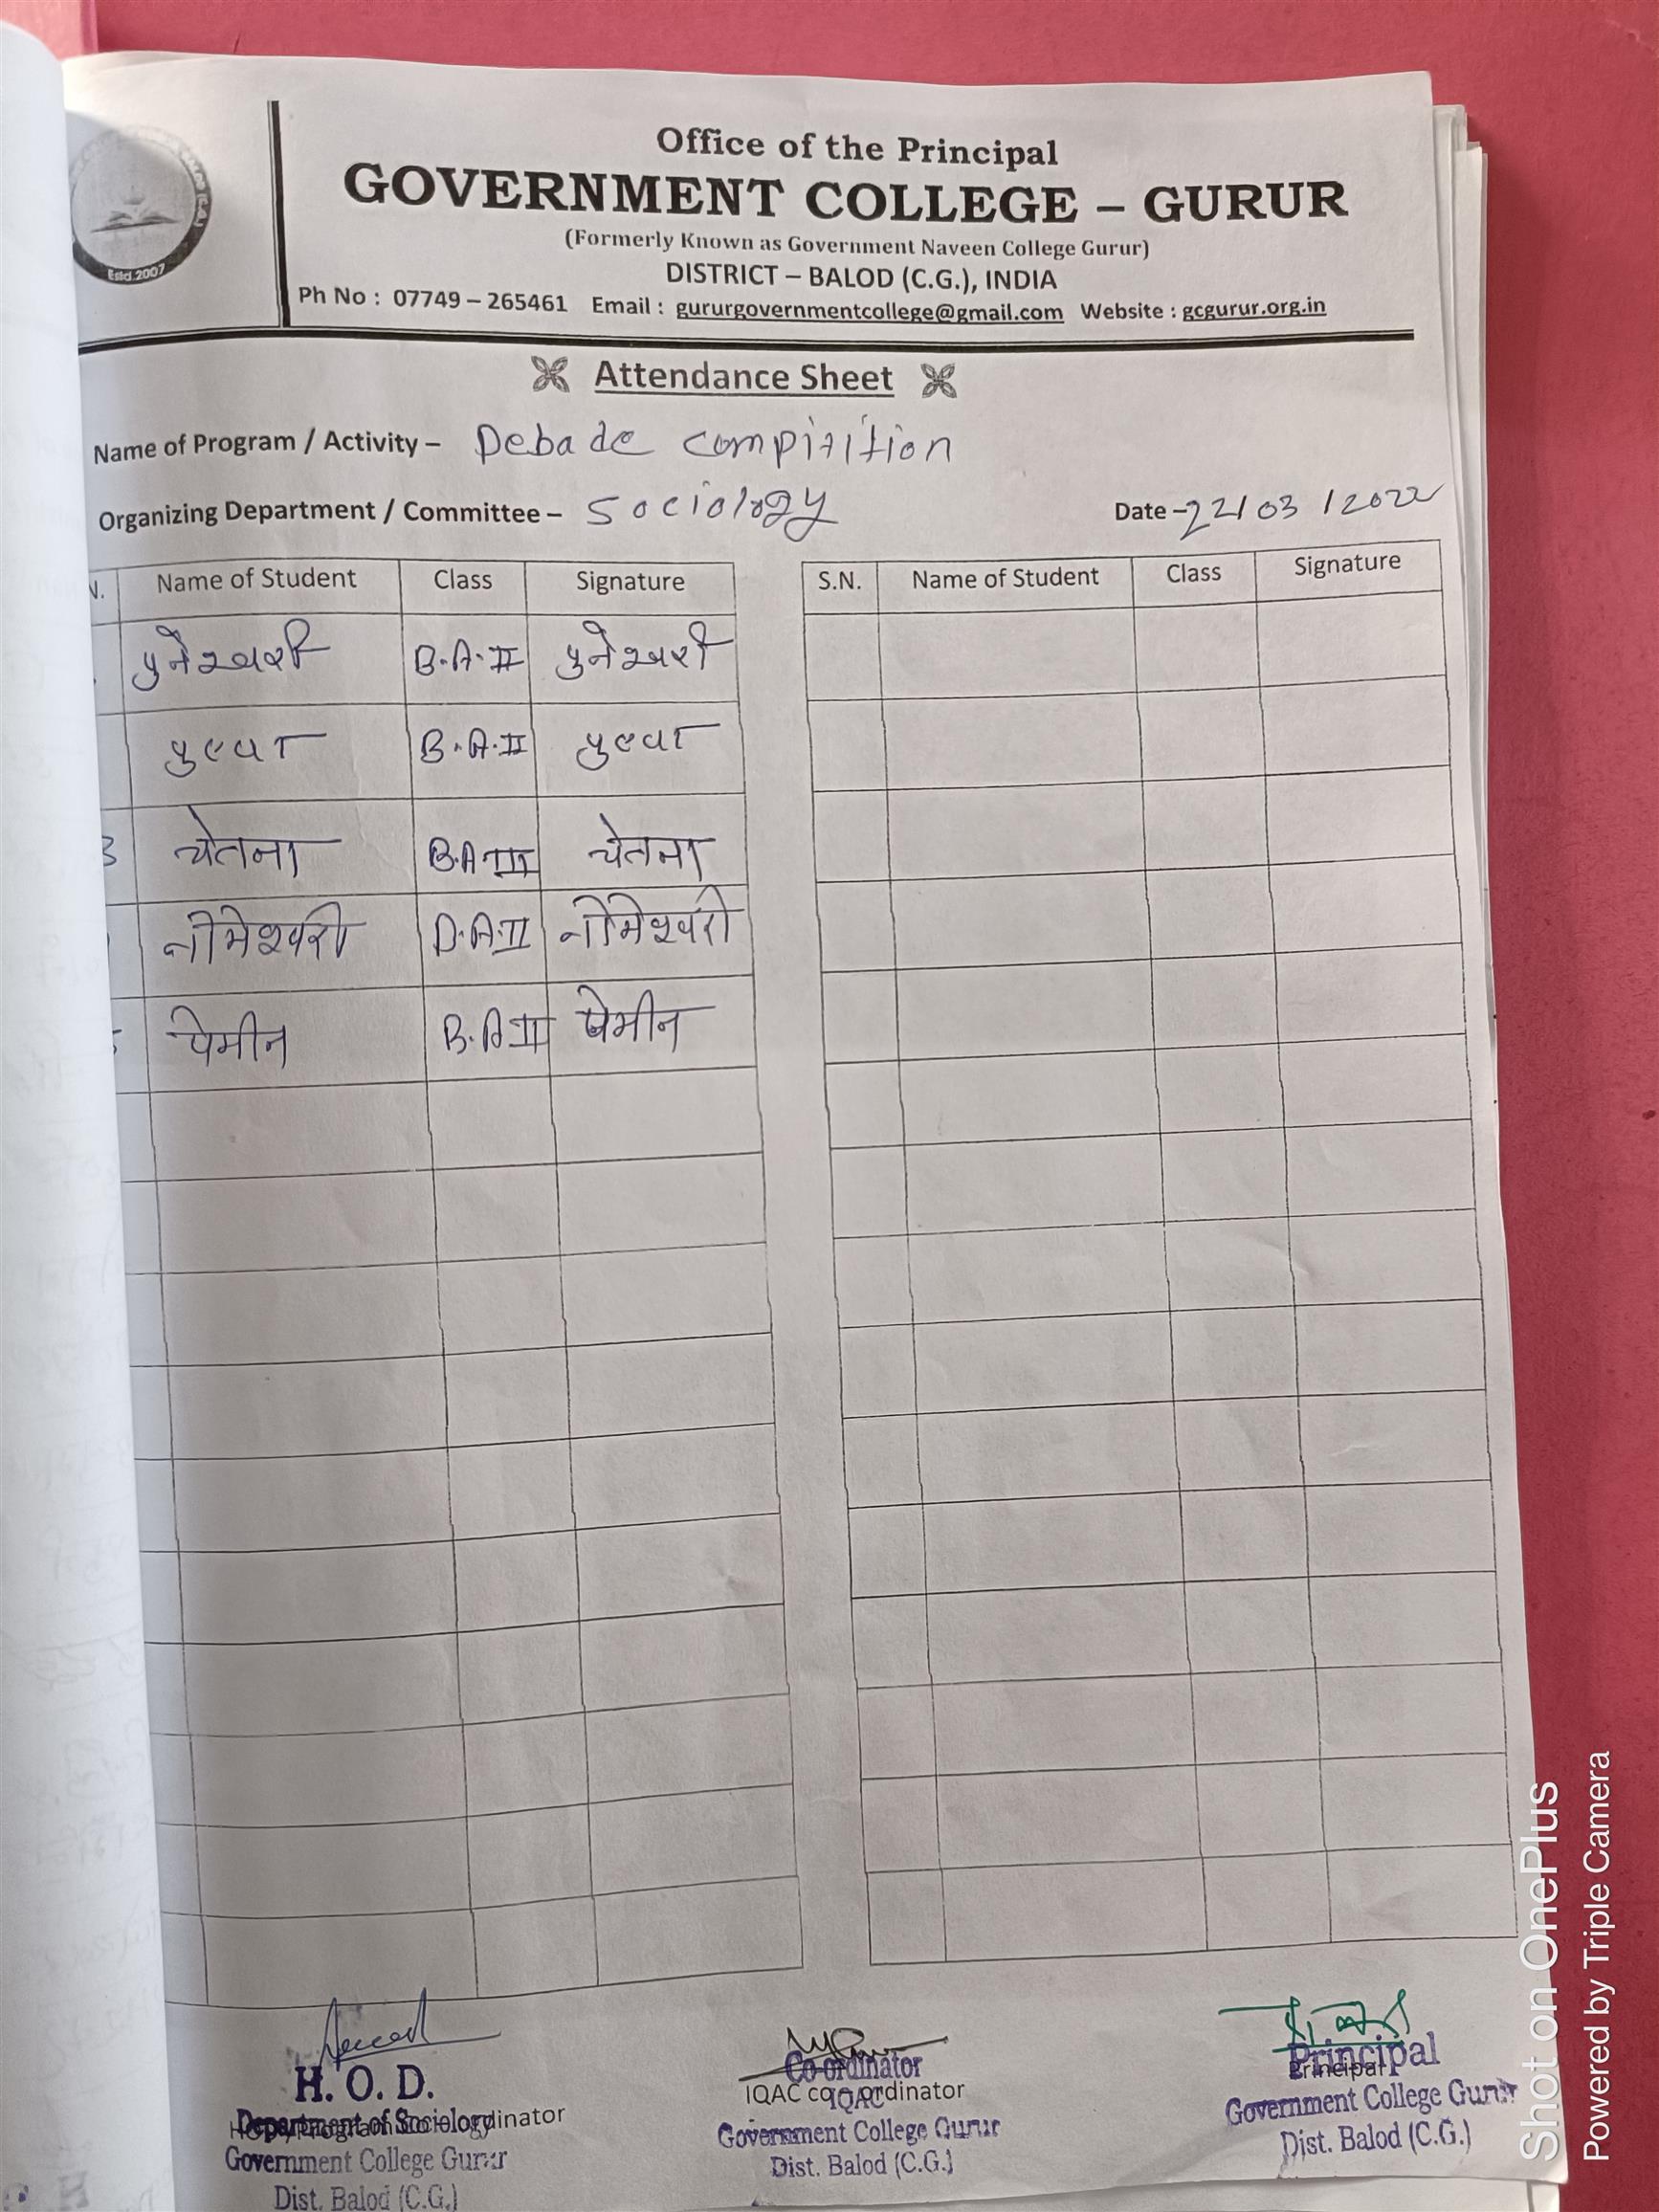 Office of the Principal
GOVERNMENT COLLEGE – GURUR
(Formerly Known as Government Naveen College Gurur)
DISTRICT – BALOD (C.G.), INDIA
Ph No : 07749 – 265461 Email : gururgovernmentcollege@gmail.com Website : gcgurur.org.in
Estd.2007
Attendance Sheet
Name of Program / Activity – Debade compitition
Organizing Department / Committee – Sociology Date – 22/03/2022
N. Name of Student Class Signature S.N. Name of Student Class Signature
पुनेश्वरी B.A.II पुनेश्वरी
B.A.II
3 चेतना B.A III चेतना
नोमेश्वरी B.A.II नोमेश्वरी
पेमीन B.A II पेमीन
H. O. D.
Department of Sociology
Government College Gurur
Dist. Balod (C.G.)
Co-ordinator
IQAC co-ordinator
IQAC
Government College Gurur
Dist. Balod (C.G.)
Principal
Principal
Government College Gurur
Dist. Balod (C.G.)
Shot on OnePlus
Powered by Triple Camera